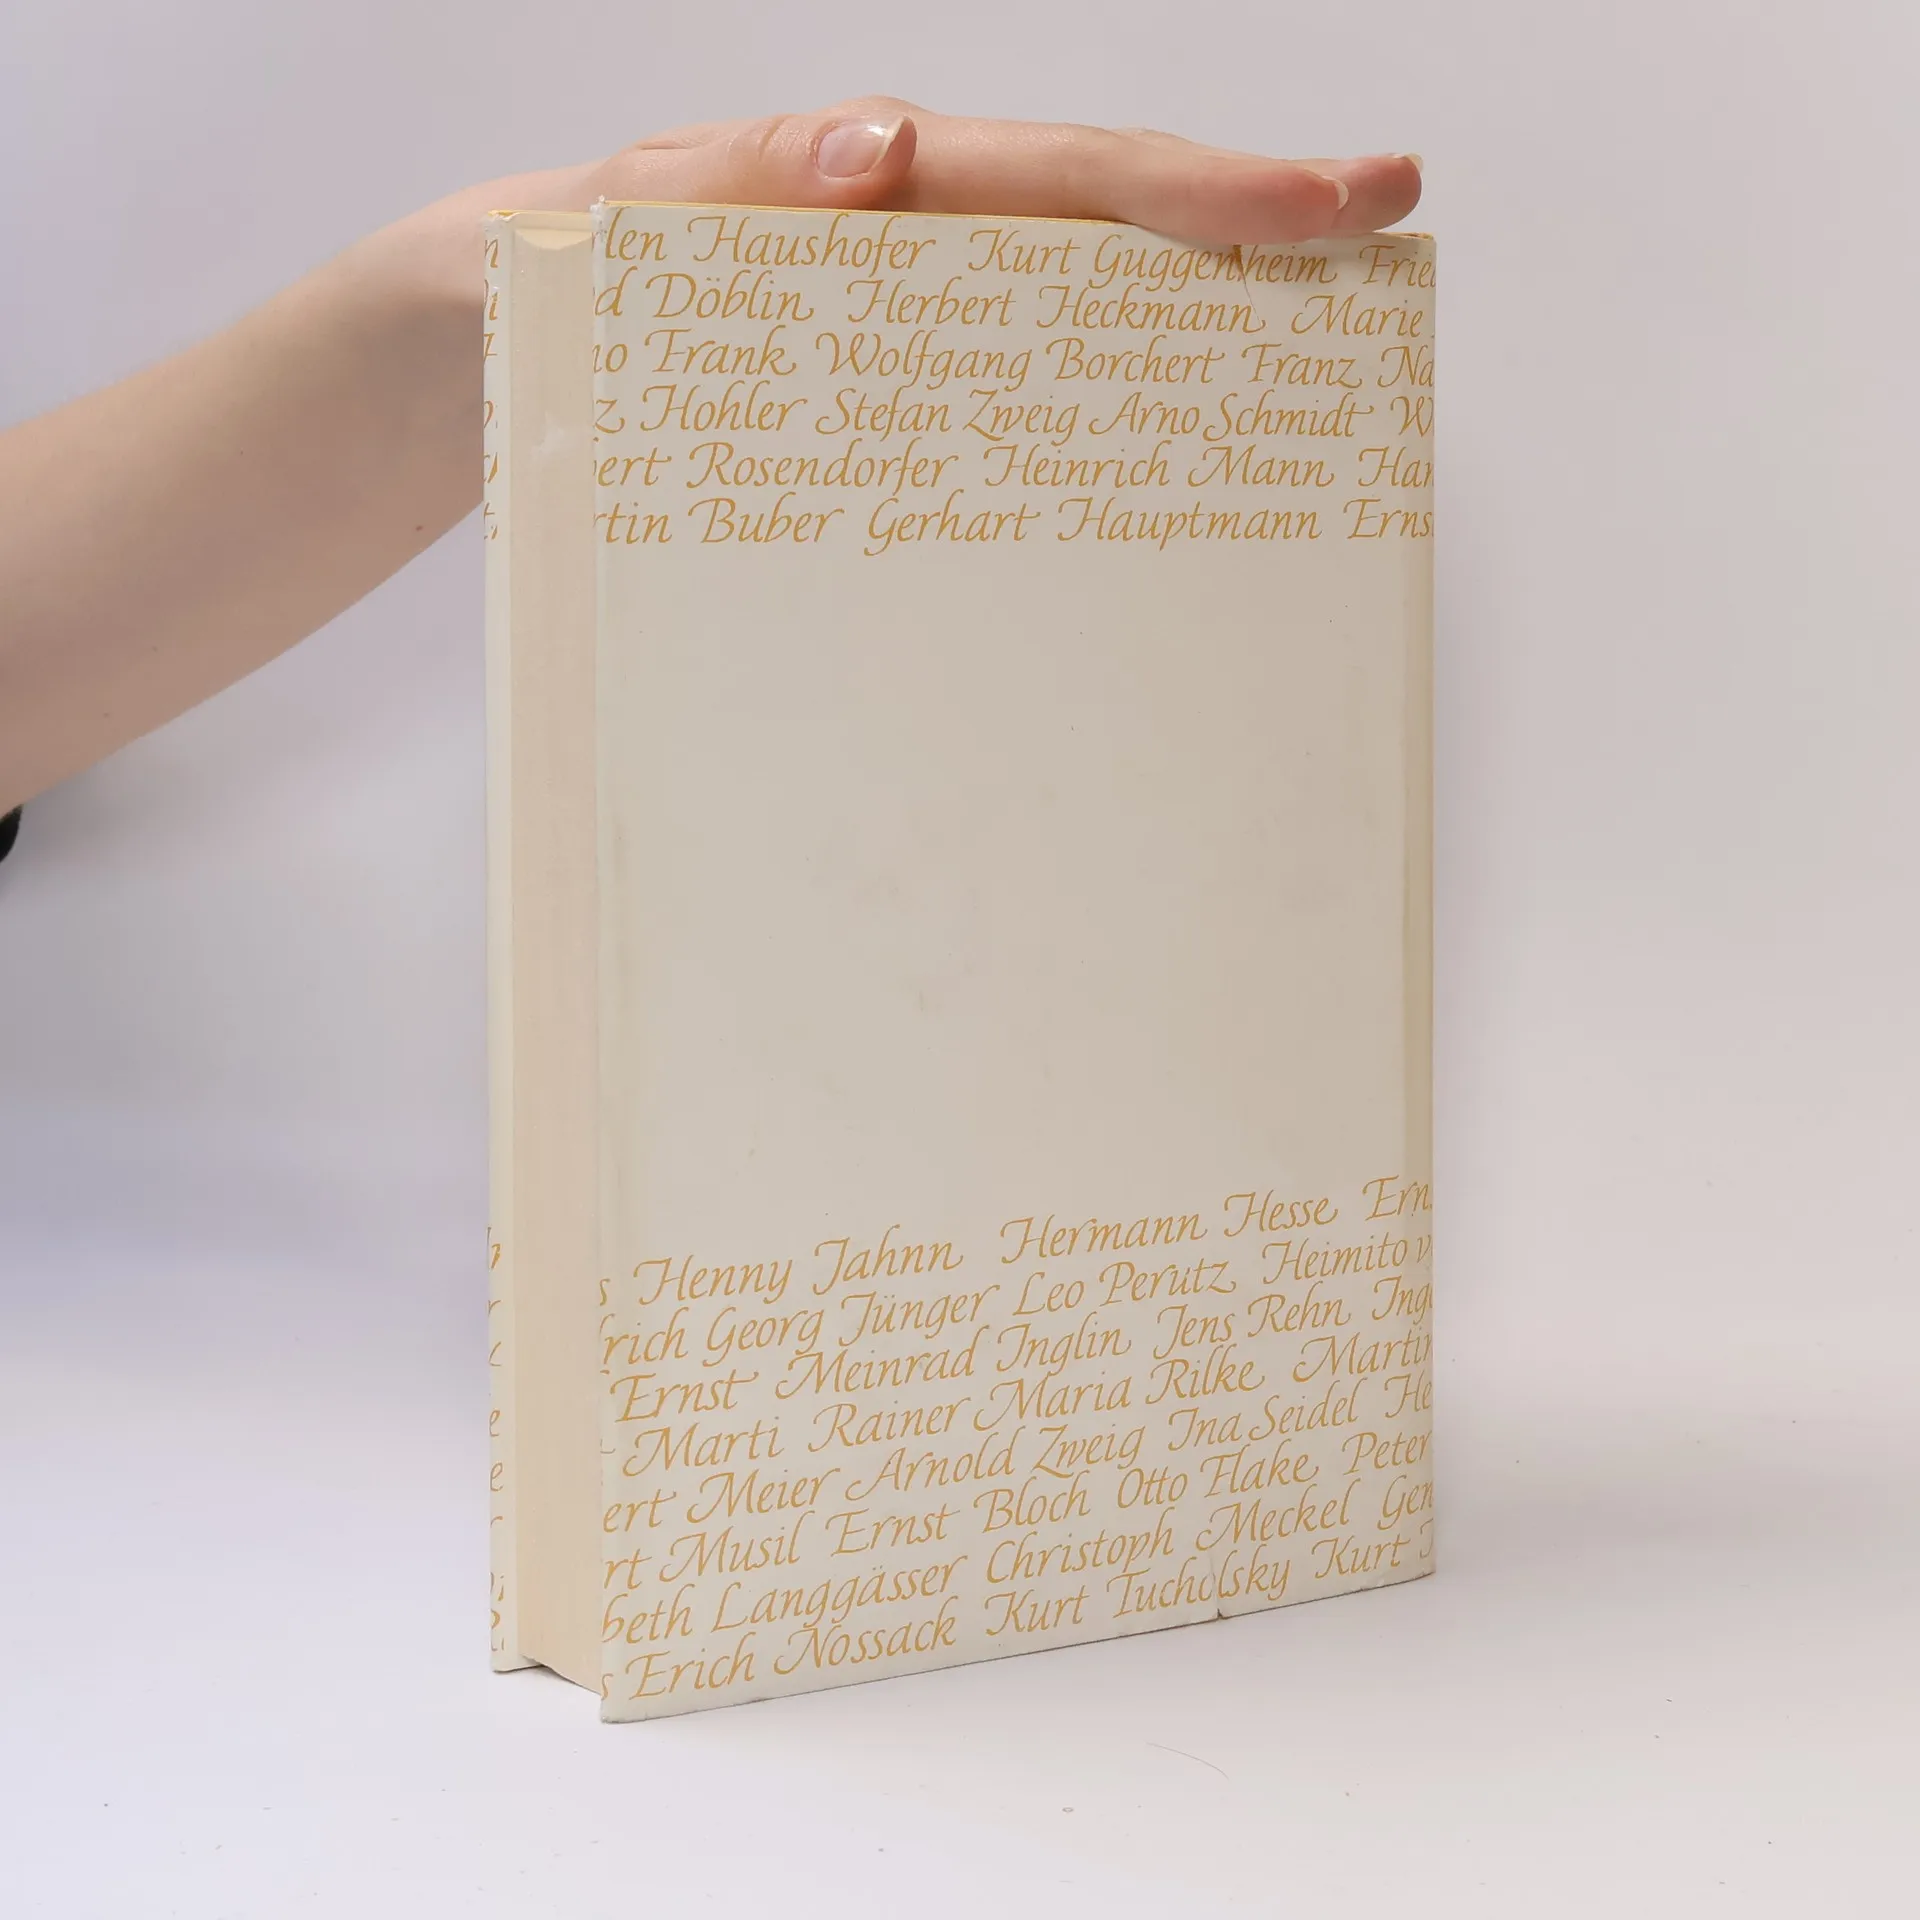 len Haushofer Kurt Guggenheim Fried
d Döblin Herbert Heckmann Marie
no Frank Wolfgang Borchert Franz Na
z Hohler Stefan Zweig Arno Schmidt W
bert Rosendorfer Heinrich Mann Han
rtin Buber Gerhart Hauptmann Ernst
s Henny Jahnn Hermann Hesse Ern
drich Georg Jünger Leo Perutz Heimito v
Ernst Meinrad Inglin Jens Rehn Inge
t Marti Rainer Maria Rilke Martin
ert Meier Arnold Zweig Ina Seidel He
rt Musil Ernst Bloch Otto Flake Peter
beth Langgässer Christoph Meckel Ger
s Erich Nossack Kurt Tucholsky Kurt